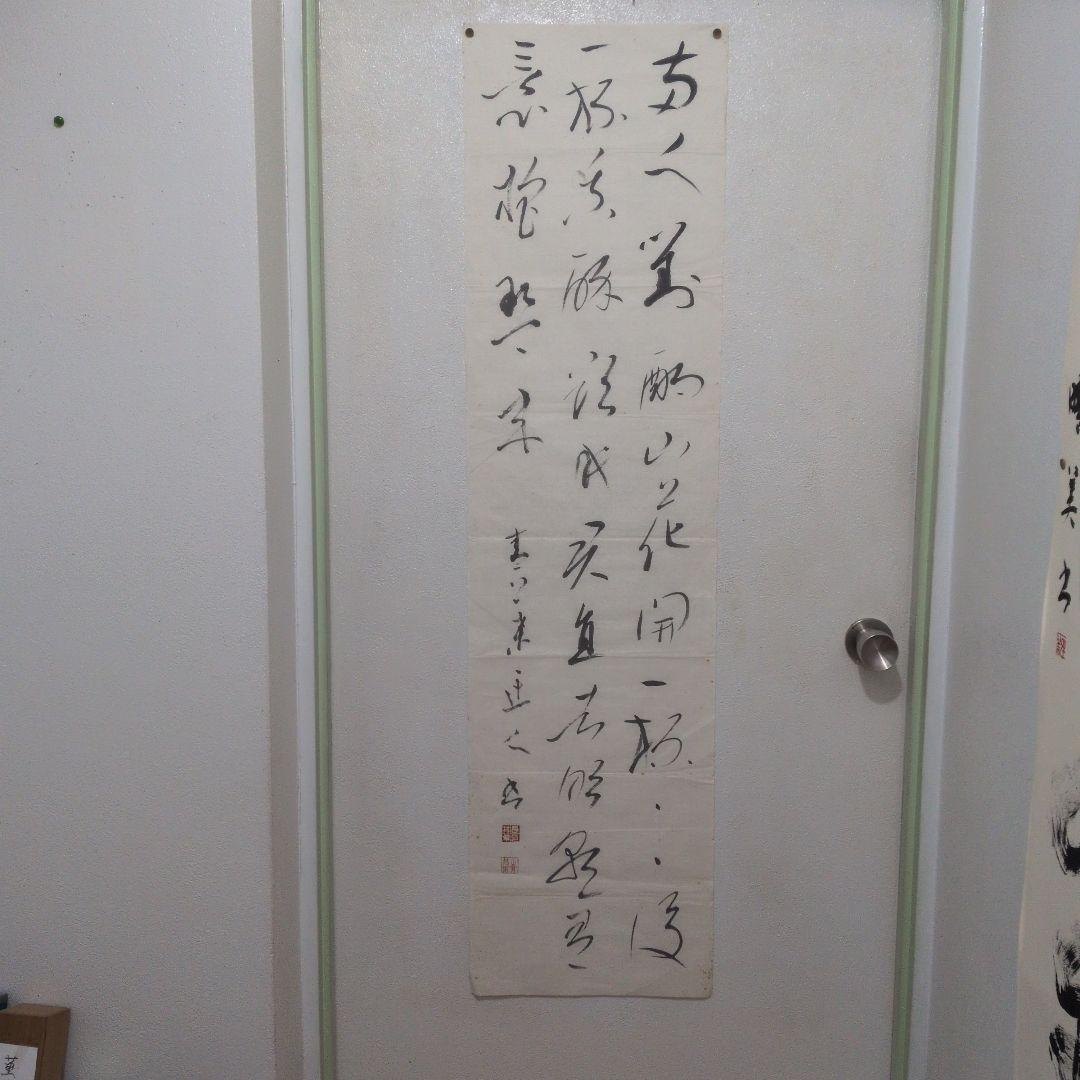 兩人對酌山花開一杯〻〻復
一杯我醉欲眠卿且去明朝有
意抱琴来
人書